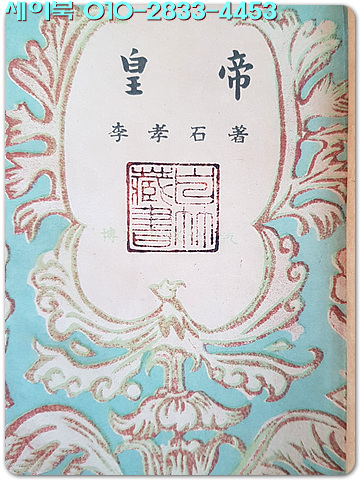 세이북 010-2833-4453
皇帝
李孝石著
藏書
博